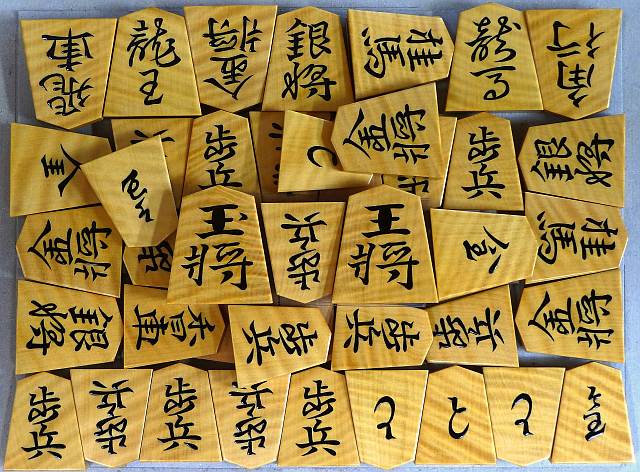 飛車
龍王
金将
銀将
桂馬
龍馬
角行
歩兵
と
金将
歩兵
銀将
金将
王将
歩兵
王将
桂馬
銀将
香車
歩兵
歩兵
歩兵
金将
歩兵
歩兵
歩兵
歩兵
歩兵
と
と
と